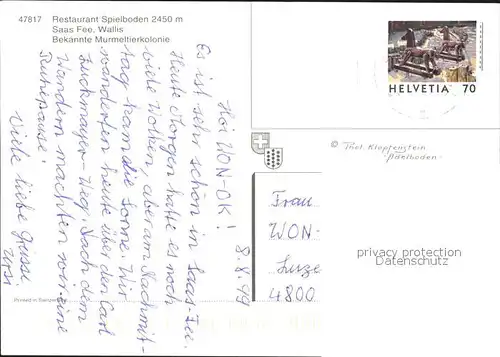 47817 Restaurant Spielboden 2450 m
Saas Fee, Wallis
Bekannte Murmeltierkolonie
8.8.99
Hoi WON-OK!
Es ist sehr schön in Saas-Fee.
Heute Morgen hatte es noch
viele Wolken, aber am Nachmit-
tag kam die Sonne. Wir
wanderten heute über den Carl
Zuckmayer-Weg. Nach dem
Wandern machten wir eine
Ruhepause!
Viele liebe Grüsse.
Ursi
Printed in Switzerland
HELVETIA 70
© Phot. Klopfenstein
Adelboden
Frau
WON-
Luze
4800
privacy protection
Datenschutz